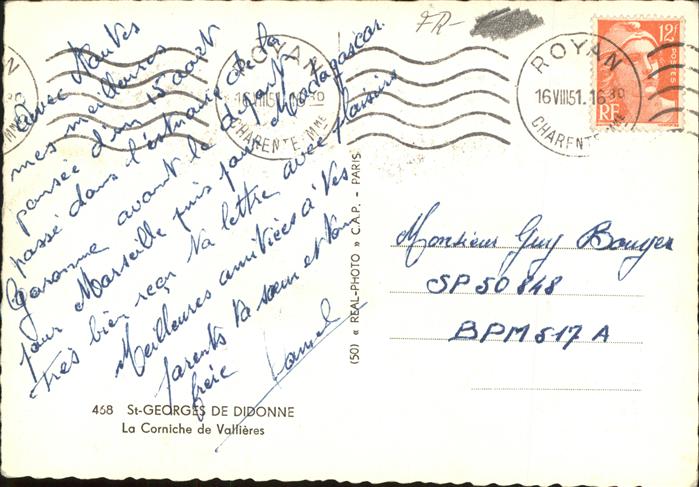 avec Nantes
mes meilleures
pensée d'un 15 août
passé dans l'estuaire de la
Garonne avant le départ
pour Marseille puis pour Madagascar.
Très bien reçu ta lettre avec plaisir
Meilleures amitiées à tes
parents ta sœur et ton
frère
FR-
ROYAN
16 VIII 51
CHARENTE MME
ROYAN
16 VIII 51. 16 30
CHARENTE MME
12F
POSTES
RF
(50) « REAL-PHOTO » C.A.P. - PARIS
Monsieur Guy
SP 50 848
BPM 517 A
468 St-GEORGES DE DIDONNE
La Corniche de Vallières